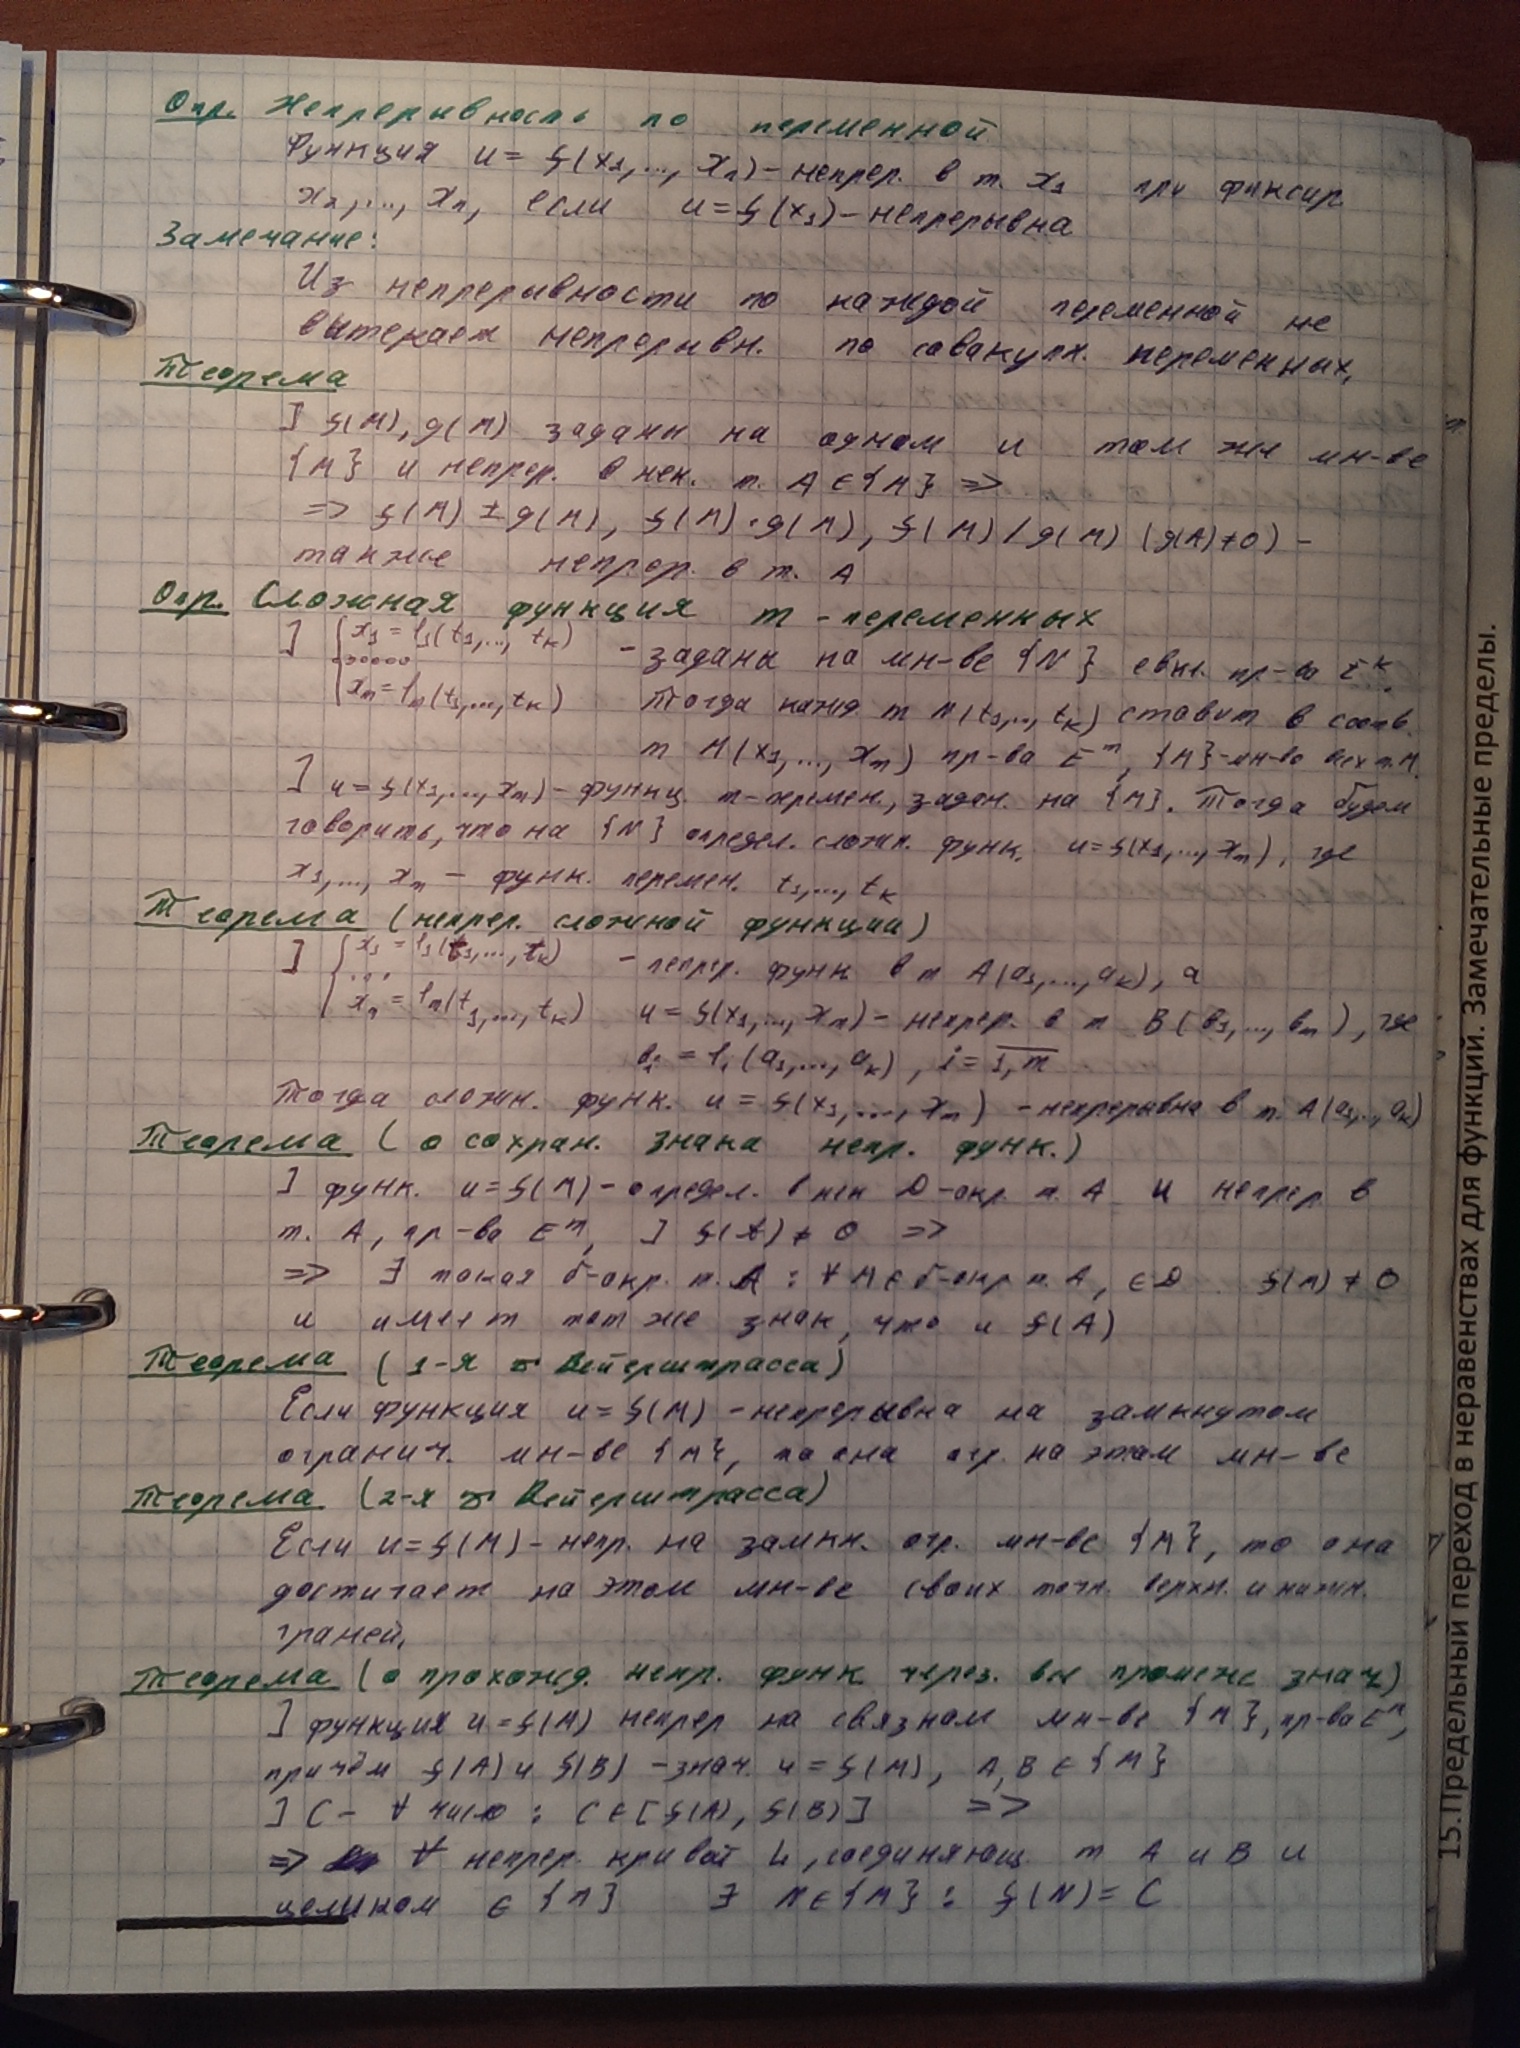 Опр. Непрерывность по переменной
Функция u = f(x₁,..., xₙ) - непрер. в т. x₁ при фиксир
x₂,..., xₙ, если u = f(x₁) - непрерывна
Замечание:
Из непрерывности по каждой переменной не
вытекает непрерывн. по совакупн. переменных.
Теорема
] f(M), g(M) заданы на одном и том же мн-ве
{M} и непрер. в нек. т. A ∈ {M} =>
=> f(M) ± g(M), f(M) · g(M), f(M) / g(M) (g(A) ≠ 0) -
также непрер. в т. A
Опр. Сложная функция m - переменных
] { x₁ = l₁(t₁,..., tₖ) - заданы на мн-ве {N} евкл. пр-ва Eᵏ.
xₘ = lₘ(t₁,..., tₖ) Тогда кажд. т N(t₁,.., tₖ) ставит в соотв.
т M(x₁,..., xₘ) пр-ва Eᵐ, {M}-мн-во всех т. M.
] u = f(x₁,..., xₘ) - функц. m-перемен., задан. на {M}. Тогда будем
говорить, что на {N} определ. сложн. функ. u = f(x₁,..., xₘ), где
x₁,..., xₘ - функ. перемен. t₁,..., tₖ
Теорема (непрер. сложной функции)
] { x₁ = l₁(t₁,..., tₖ) - непрер. функ в т A(a₁,..., aₖ), а
...
xₙ = lₘ(t₁,..., tₖ) u = f(x₁,..., xₘ) - непрер. в т B(b₁,..., bₘ), где
bᵢ = lᵢ(a₁,..., aₖ), i = 1,m
Тогда сложн. функ. u = f(x₁,..., xₘ) - непрерывна в т. A(a₁,.., aₖ)
Теорема (о сохран. знака непр. функ.)
] функ. u = f(M) - определ. в нек D-окр. т. A и непрер. в
т. A, пр-ва Eᵐ, ] f(A) ≠ 0 =>
=> ∃ такая δ-окр. т. A : ∀ M ∈ δ-окр т. A, ∈ D f(M) ≠ 0
и имеет тот же знак, что и f(A)
Теорема (1-я т Вейерштрасса)
Если функция u = f(M) - непрерывна на замкнутом
огранич. мн-ве {M}, то она огр. на этом мн-ве
Теорема (2-я т Вейерштрасса)
Если u = f(M) - непр. на замкн. огр. мн-ве {M}, то она
достигает на этом мн-ве своих точн. верхн. и нижн.
граней.
Теорема (о прохожд. непр. функ через. все промеж знач)
] функция u = f(M) непрер на связном мн-ве {M}, пр-ва Eᵐ,
причём f(A) и f(B) - знач. u = f(M), A, B ∈ {M}
] C - ∀ число : C ∈ [f(A), f(B)] =>
=> ∀ непрер. кривой L, соединяющ. т A и B и
целиком ∈ {M} ∃ N ∈ {M} : f(N) = C
15.Предельный переход в неравенствах для функций. Замечательные пределы.